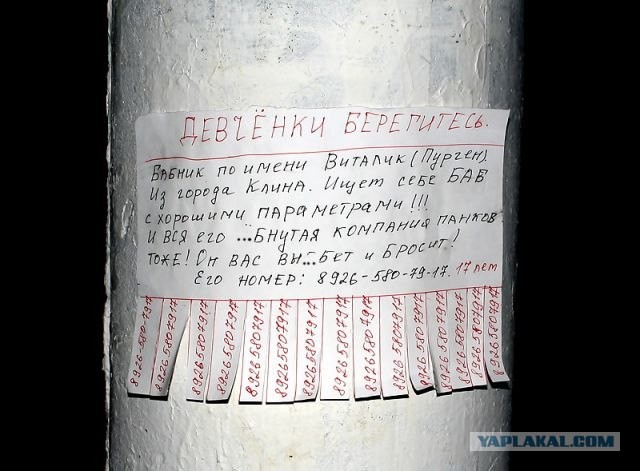 ДЕВЧЁНКИ БЕРЕГИТЕСЬ.
БАБНИК ПО ИМЕНИ ВИТАЛИК (ПУРГЕН)
ИЗ ГОРОДА КЛИНА. ИЩЕТ СЕБЕ БАБ
С ХОРОШИМИ ПАРАМЕТРАМИ!!!
И ВСЯ ЕГО ...БНУТАЯ КОМПАНИЯ ПАНКОВ
ТОЖЕ! ОН ВАС ВЫ...БЕТ И БРОСИТ!
ЕГО НОМЕР: 8926-580-79-17. 17 лет
8926-580-7917
89265807917
89265807917
89265807917
89265807917
89265807917
89265807917
89265807917
89265807917
89265807917
89265807917
89265807917
89265807917
89265807917
YAPLAKAL.COM